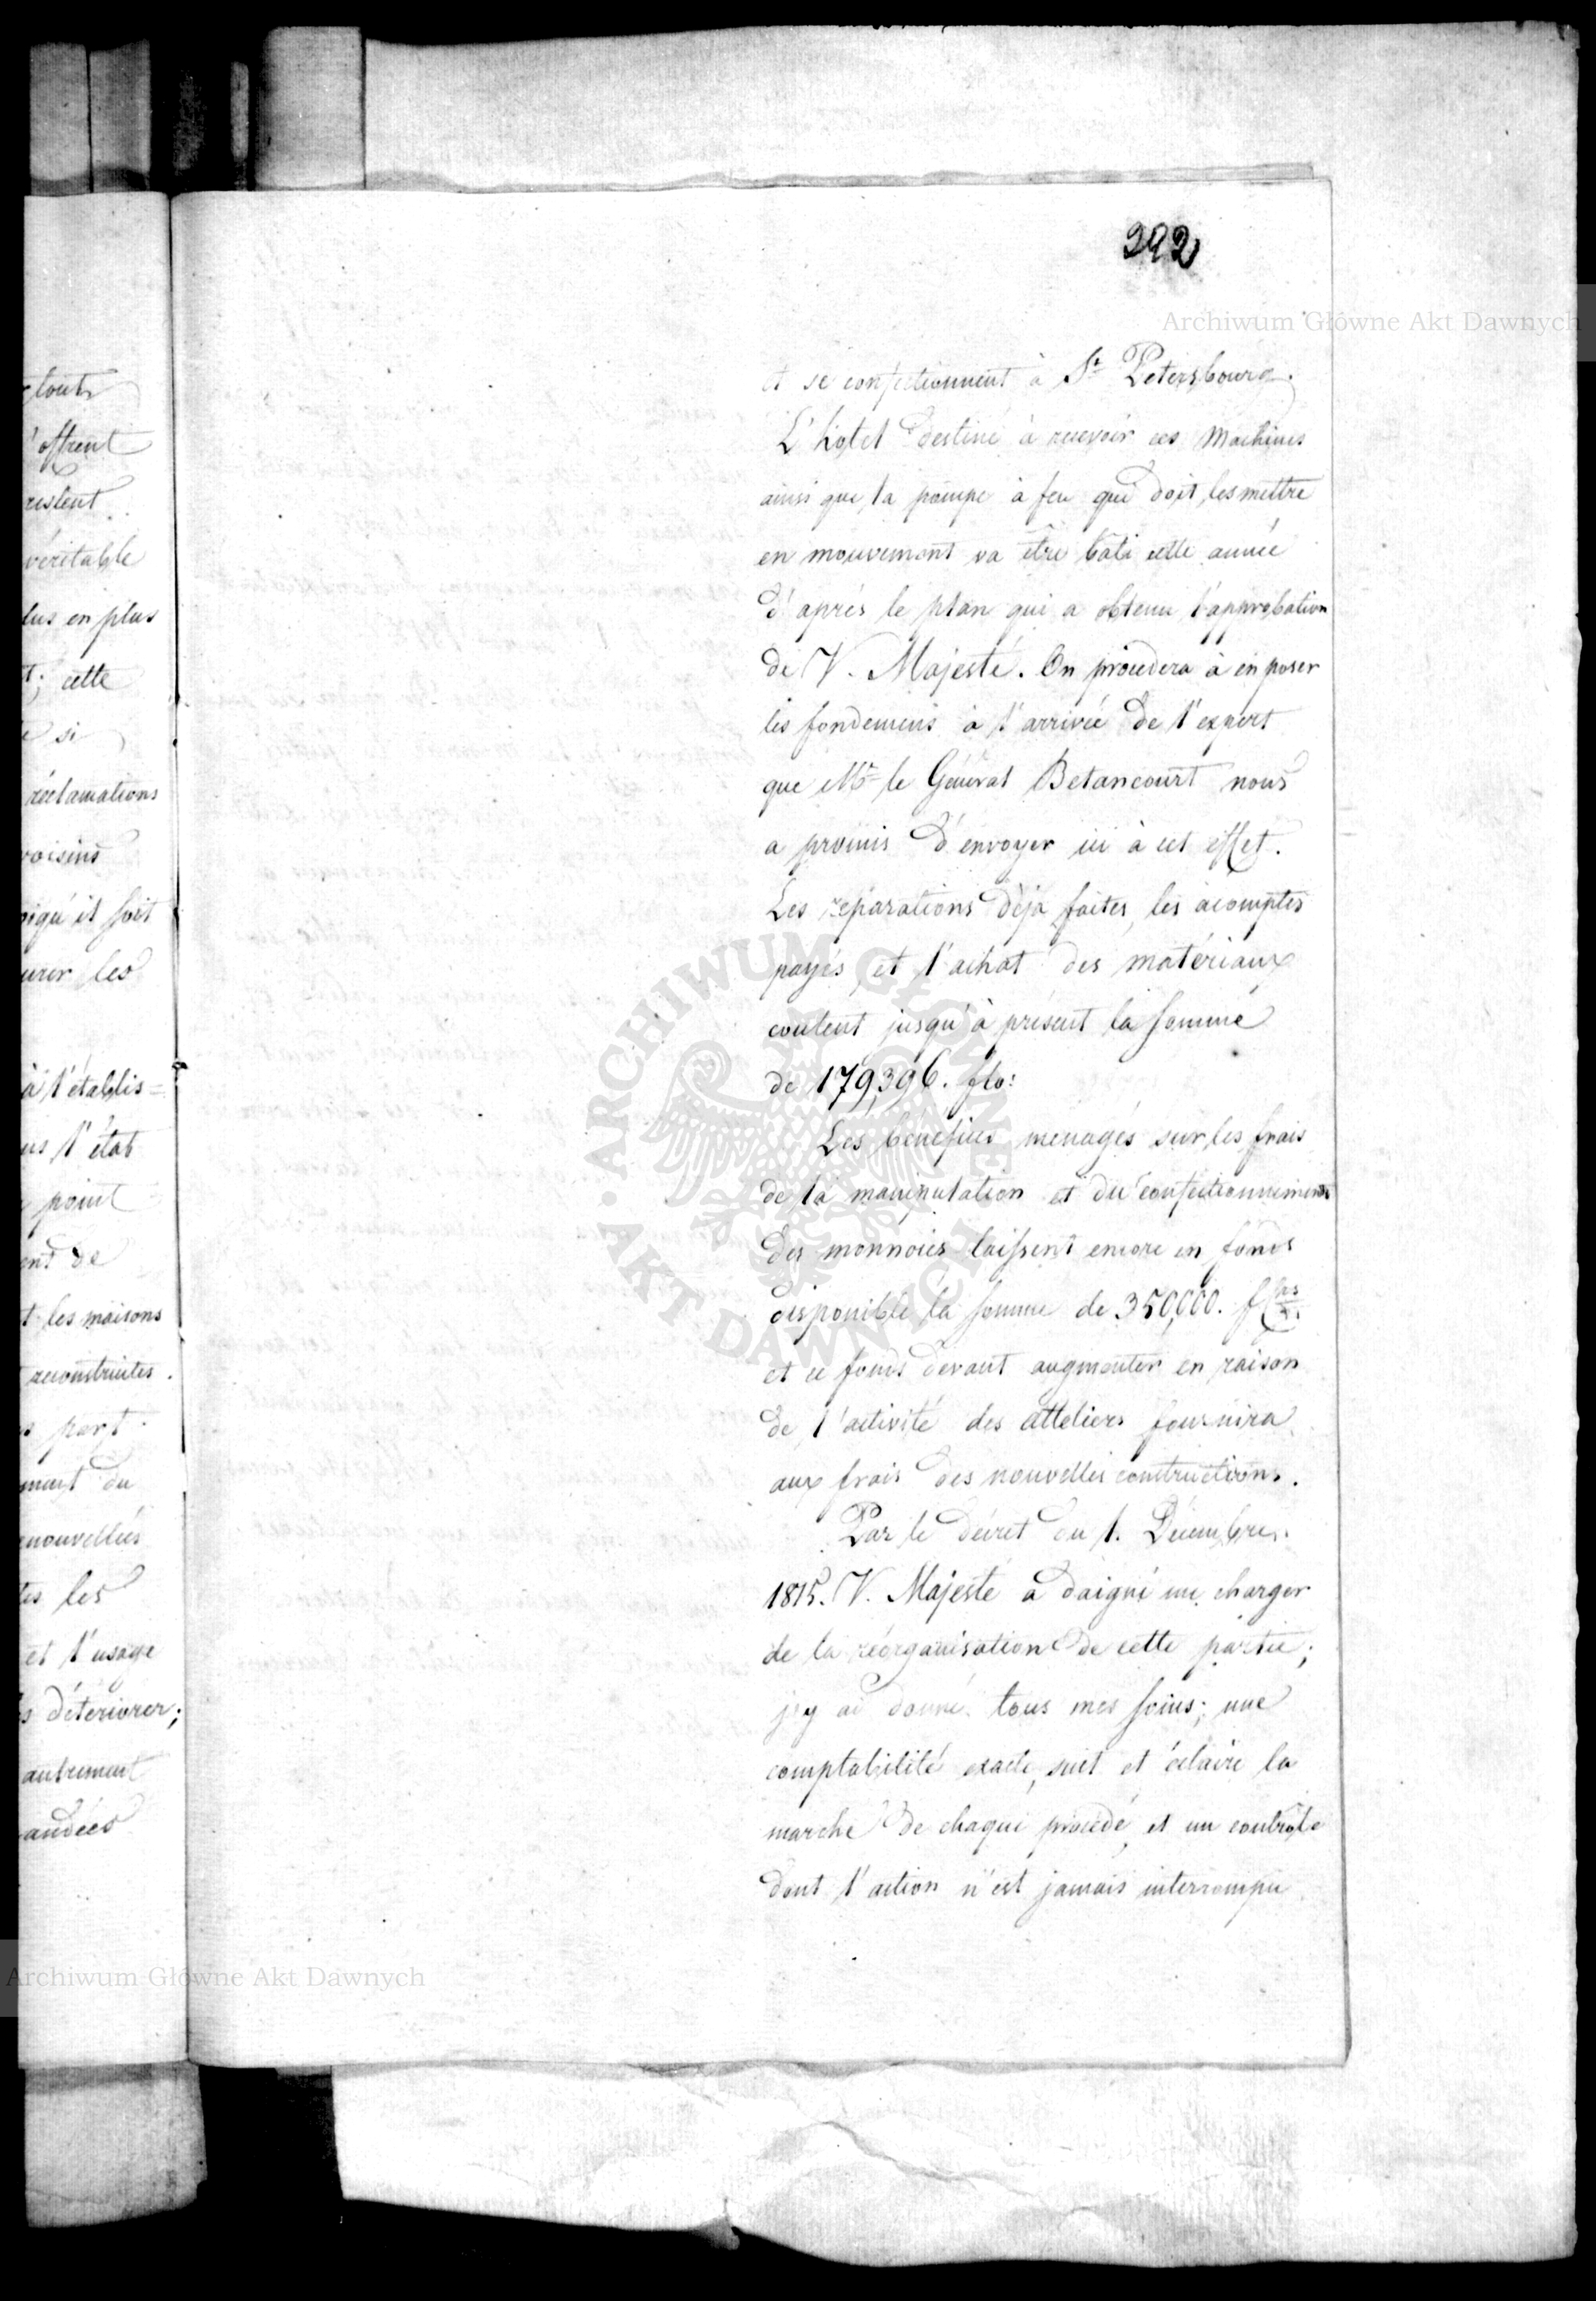 392
Archiwum Główne Akt Dawnych
et se confectionnent à St Petersbourg.
L'hotel destiné à recevoir ces Machines
ainsi que la pompe à feu qui doit les mettre
en mouvement va être bâti cette année
d'après le plan qui a obtenu l'approbation
de V. Majesté. On procedera à en poser
les fondemens à l'arrivée de l'expert
que Mr le Général Betancourt nous
a promis d'envoyer ici à cet effet.
Les reparations déja faites, les acomptes
payés, et l'achat des matériaux
coutent jusqu'à présent la somme
de 179,396. flo:
Les bénéfices menagés sur les frais
de la manipulation et du confectionnement
des monnoies laissent encore en fonds
disponible la somme de 350,000.
et ce fonds devant augmenter en raison
de l'activité des atteliers fournira
aux frais des nouvelles constructions.
Par le décret du 1. Décembre
1815. V. Majesté a daigné me charger
de la réorganisation de cette partie;
j'y ai donné tous mes soins; une
comptabilité exacte, suit et éclaire la
marche de chaque procédé, et un contrôle
dont l'action n'est jamais interrompu
tout
l'offrent
restent
véritable
lus en plus
t; cette
si
réclamations
voisins
oiqu'il soit
urer les
à l'établis=
us l'état
point
ent de
t les maisons
reconstruites.
part
ment du
enouvellées
tes les
et l'usage
s déteriorer;
autrement
andées
ARCHIWUM GŁÓWNE AKT DAWNYCH
Archiwum Główne Akt Dawnych